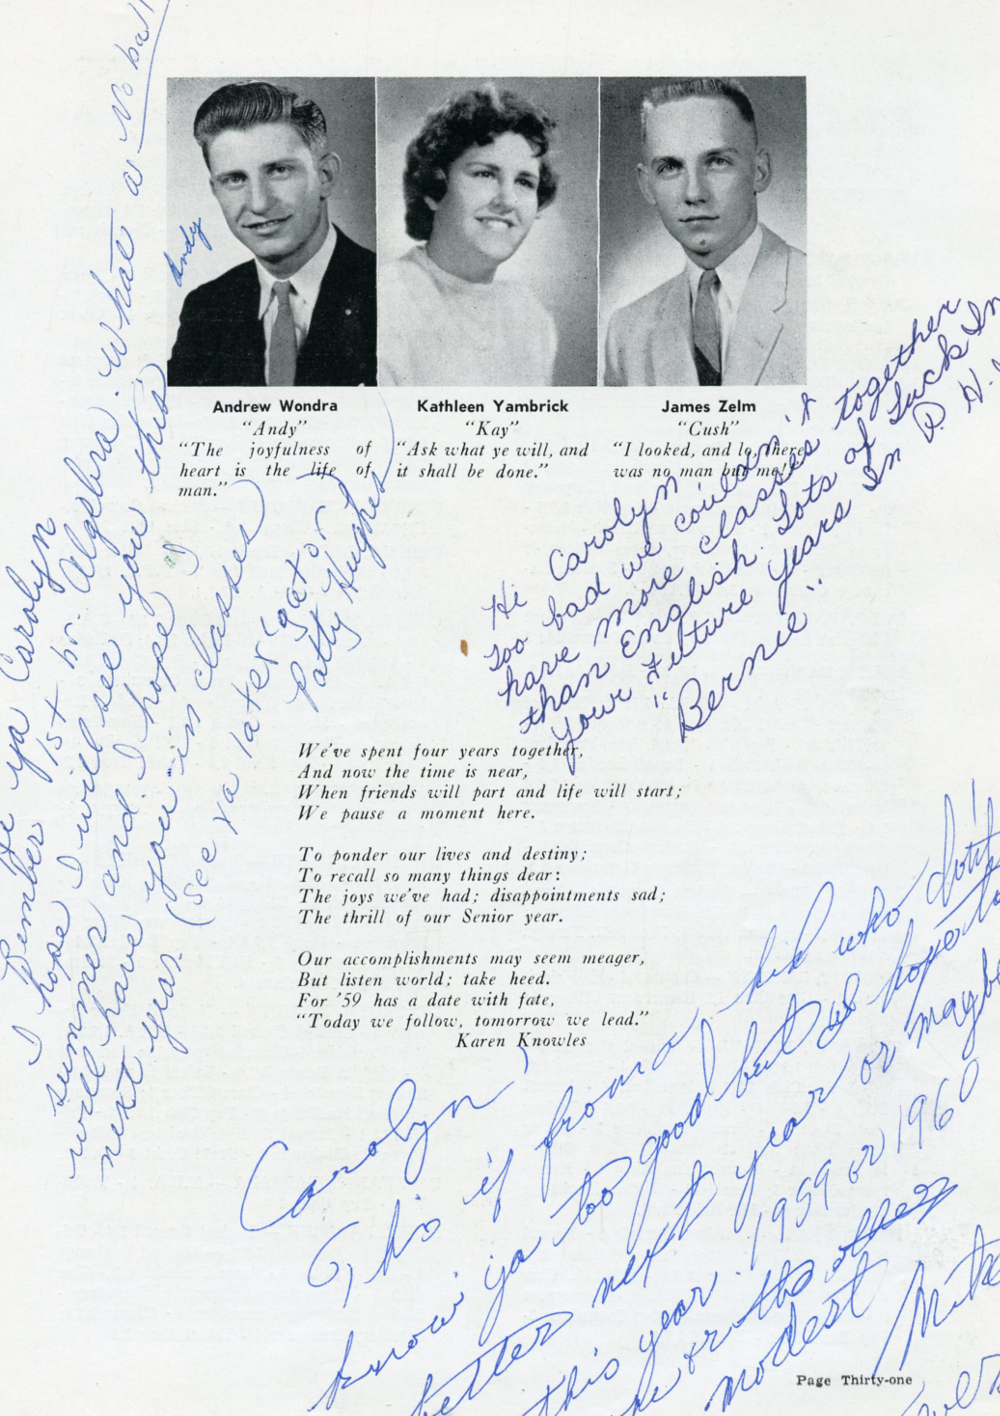 Andrew Wondra
"Andy"
"The joyfulness of
heart is the life of
man."
Kathleen Yambrick
"Kay"
"Ask what ye will, and
it shall be done."
James Zelm
"Cush"
"I looked, and lo, there
was no man but me."
Andy
Hi ya Carolyn
Rember 1st hr. Algebra. What a No ball
I hope I will see you this
summer and I hope I
will have you in classes
next year.
(See ya later 'gator)
Patty Hughes
Hi Carolyn,
Too bad we couldn't
have more classes together
than English. Lots of Luck In
Your Future Years In P. H.
"Bernie"
We've spent four years together,
And now the time is near,
When friends will part and life will start;
We pause a moment here.
To ponder our lives and destiny;
To recall so many things dear:
The joys we've had; disappointments sad;
The thrill of our Senior year.
Our accomplishments may seem meager,
But listen world; take heed.
For '59 has a date with fate,
"Today we follow, tomorrow we lead."
Karen Knowles
Carolyn,
This is from a kid who don't
know ya too good but hope to
better next year or maybe
this year. 1959 or 1960
or the other
modest
Page Thirty-one